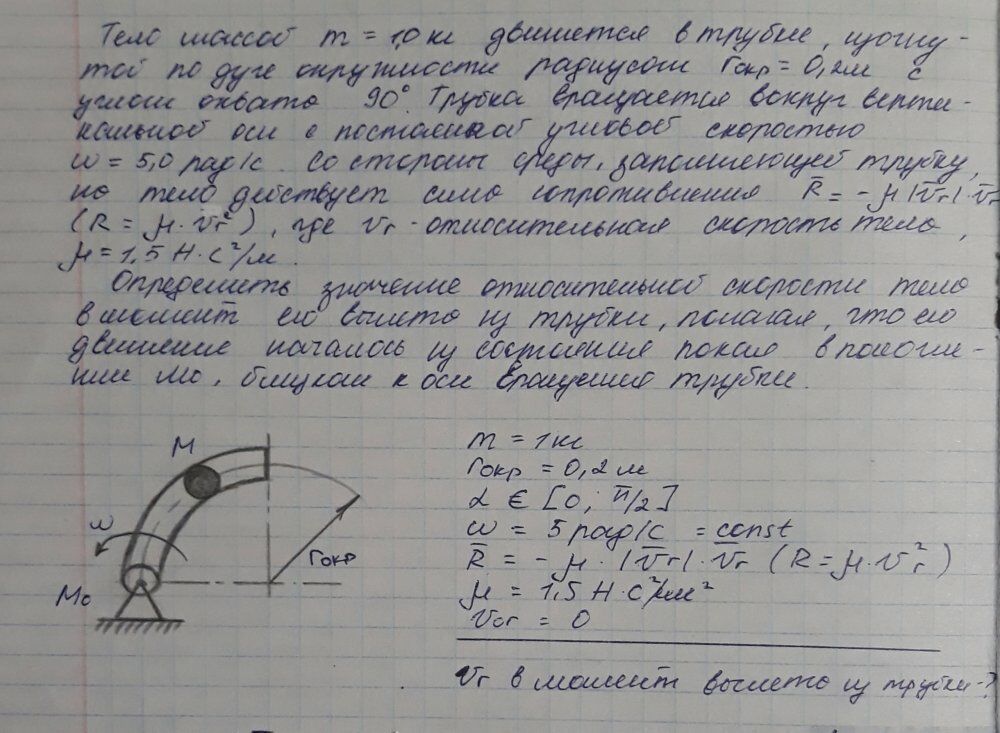 Тело массой m = 1,0 кг движется в трубке, изогну-
той по дуге окружности радиусом rокр = 0,2м с
углом охвата 90°. Трубка вращается вокруг верти-
кальной оси с постоянной угловой скоростью
ω = 5,0 рад/с. Со стороны среды, заполняющей трубку,
на тело действует сила сопротивления R̅ = - μ|v̅r|·v̅r
(R = μ·vr²), где vr - относительная скорость тела,
μ = 1,5 Н·с²/м.
Определить значение относительной скорости тела
в момент его вылета из трубки, полагая, что его
движение началось из состояния покоя в положе-
нии M₀, близком к оси вращения трубки.
M
ω
rокр
M₀
m = 1 кг
rокр = 0,2 м
α ∈ [0; π/2]
ω = 5 рад/с = const
R̅ = - μ·|v̅r|·v̅r (R = μ·v²r)
μ = 1,5 Н·с²/м²
v₀r = 0
vr в момент вылета из трубки-?